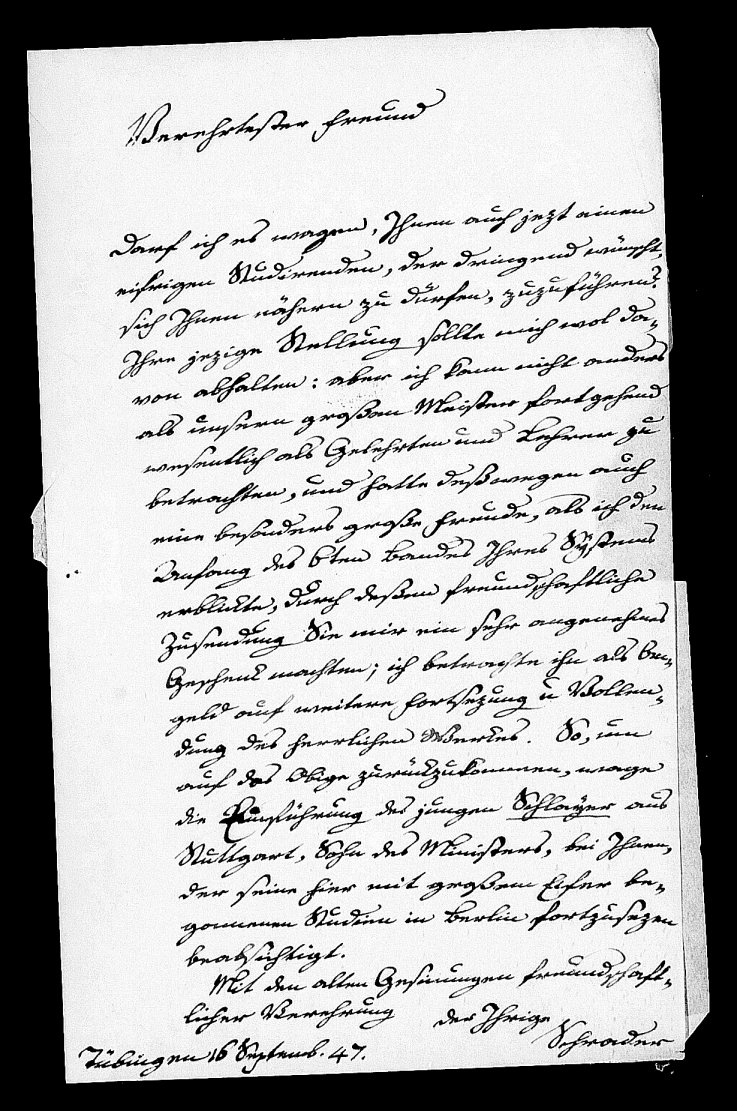 Verehrtester Freund
Darf ich es wagen, Ihnen auch jezt einen
eifrigen Studirenden, der dringend wünscht,
sich Ihnen nähern zu dürfen, zuzuführen?
Ihre jezige Stellung sollte mich wol da-
von abhalten: aber ich kann nicht anders
als unsern großen Meister fortgehend
wesentlich als Gelehrten und Lehrer zu
betrachten, und hatte deßwegen auch
eine besonders große Freude, als ich den
Anfang des 6ten Bandes Ihres Systems
erblickte, durch deßen freundschaftliche
Zusendung Sie mir ein sehr angenehmes
Geschenk machten; ich betrachte ihn als An-
geld auf weitere Fortsezung u Vollen-
dung des herrlichen Werkes. So, um
auf das Obige zurückzukommen, wage
die Einführung des jungen Schlayer aus
Stuttgart, Sohn des Ministers, bei Ihnen,
der seine hier mit großem Eifer be-
gonnenen Studien in Berlin fortzusezen
beabsichtigt.
Mit den alten Gesinnungen freundschaft-
licher Verehrung der Ihrige
Schrader
Tübingen 16 Septemb. 47.